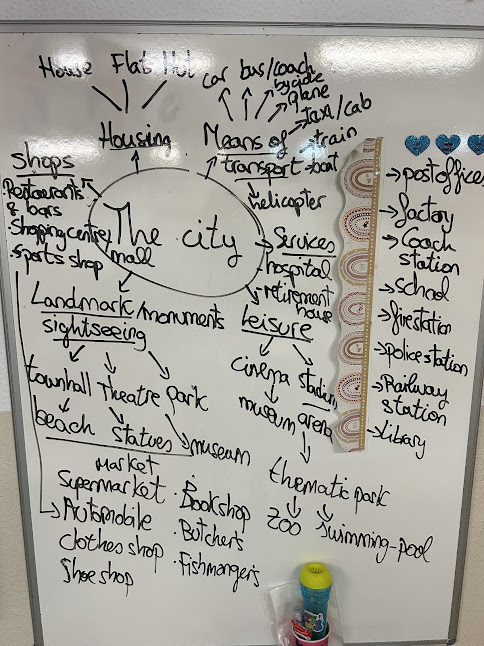 House Flat Hut
Housing
car bus/coach
bycicle
plane
taxi/cab
train
boat
helicopter
Means of
transport
The city
Shops
Restaurants
& bars
.Shopping centre/
mall
.sports shop
Landmark/monuments
sightseeing
townhall Theatre park
beach Statues museum
Services
- hospital
- retirement
house
leisure
cinema stadium
museum arena
thematic park
zoo swimming-pool
→ post offices
→ factory
→ Coach
station
→ school
→ firestation
→ police station
→ Railway
station
→ Library
Market
Supermarket
Automobile
Clothes shop
Shoe shop
. Bookshop
. Butcher's
. Fishmonger's